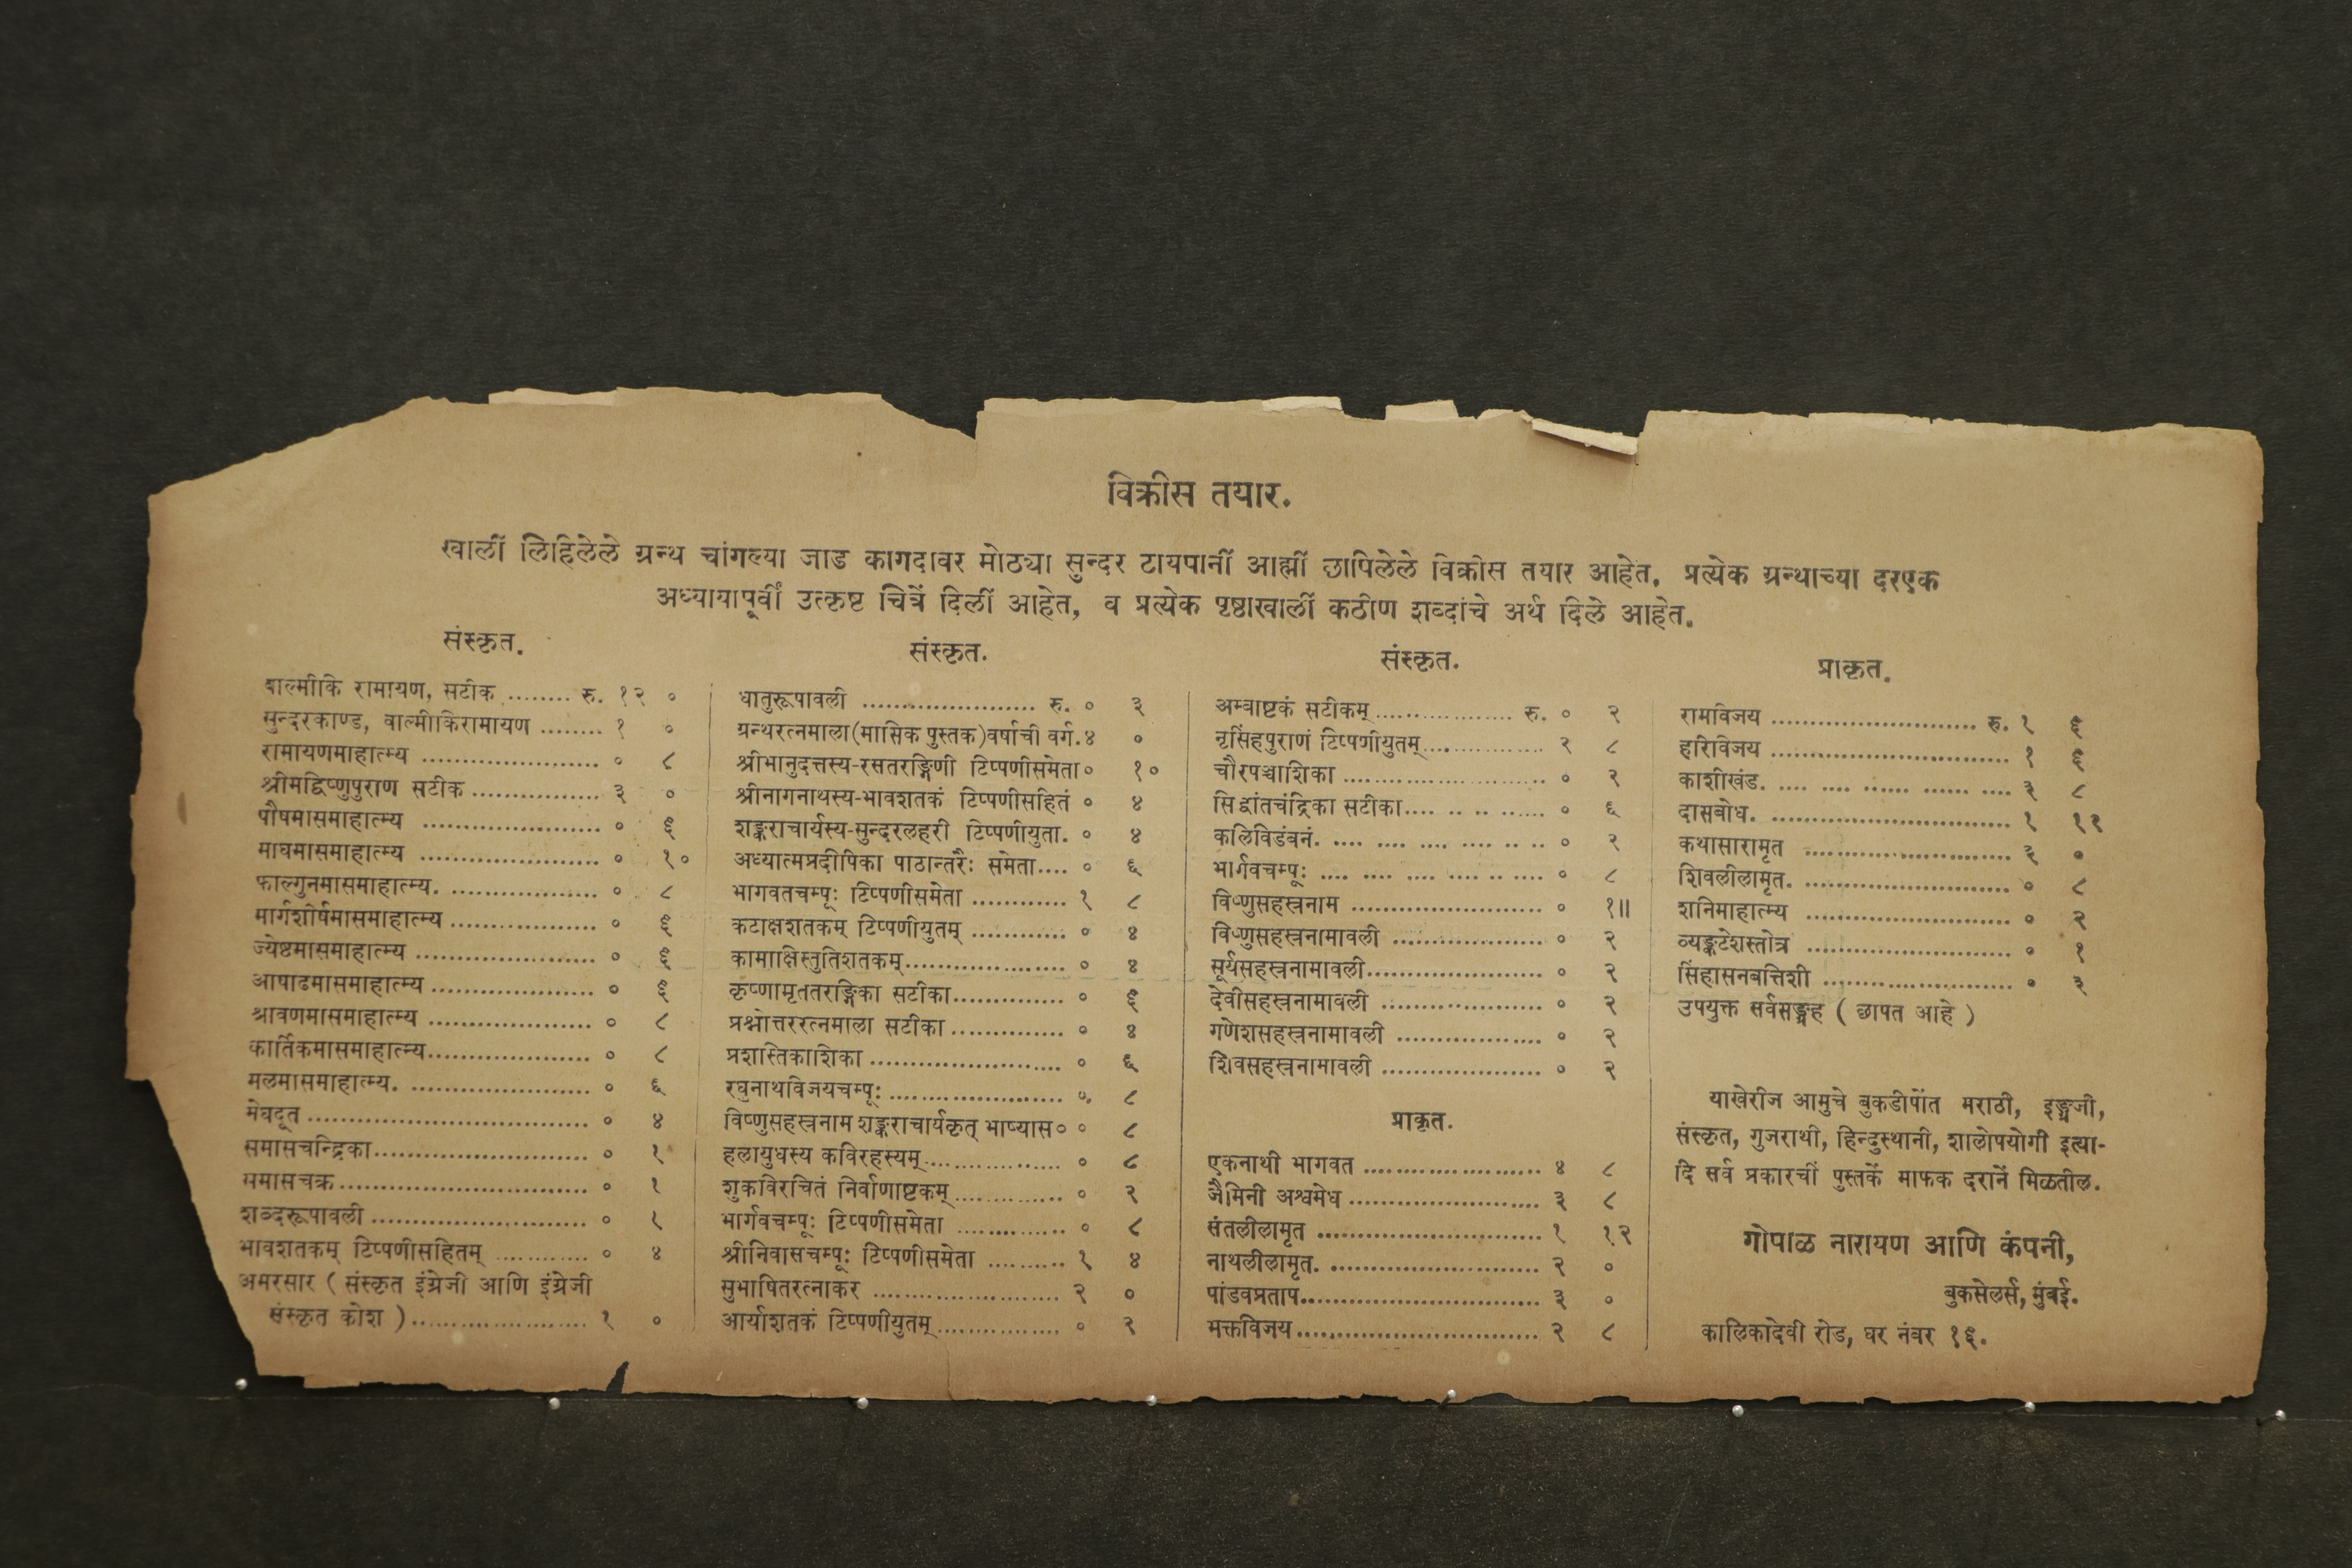 विक्रीस तयार.
खालीं लिहिलेले ग्रन्थ चांगल्या जाड कागदावर मोठ्या सुन्दर टायपानीं आह्मीं छापिलेले विक्रीस तयार आहेत. प्रत्येक ग्रन्थाच्या दरएक
अध्यायापूर्वीं उत्कृष्ट चित्रें दिलीं आहेत, व प्रत्येक पृष्ठाखालीं कठीण शब्दांचे अर्थ दिले आहेत.
संस्कृत.
वाल्मीकि रामायण, सटीक ........ रु. १२ ०
सुन्दरकाण्ड, वाल्मीकिरामायण ........ १ ०
रामायणमाहात्म्य ........................ ० ८
श्रीमद्विष्णुपुराण सटीक .................. ३ ०
पौषमासमाहात्म्य ........................ ० ६
माघमासमाहात्म्य ........................ ० १०
फाल्गुनमासमाहात्म्य. .................... ० ८
मार्गशीर्षमासमाहात्म्य .................... ० ६
ज्येष्टमासमाहात्म्य ........................ ० ६
आषाढमासमाहात्म्य ...................... ० ६
श्रावणमासमाहात्म्य ...................... ० ८
कार्तिकमासमाहात्म्य...................... ० ८
मलमासमाहात्म्य. ........................ ० ६
मेघदूत ...................................... ० ४
समासचन्द्रिका.............................. ० १
समासचक्र.................................. ० १
शब्दरूपावली .............................. ० १
भावशतकम् टिप्पणीसहितम् ............ ० ४
अमरसार ( संस्कृत इंग्रेजी आणि इंग्रेजी
संस्कृत कोश )........................ १ ०
संस्कृत.
धातुरूपावली ........................ रु. ० ३
ग्रन्थरत्नमाला(मासिक पुस्तक)वर्षाची वर्ग.४ ०
श्रीभानुदत्तस्य-रसतरङ्गिणी टिप्पणीसमेता० १०
श्रीनागनाथस्य-भावशतकं टिप्पणीसहितं ० ४
शङ्कराचार्यस्य-सुन्दरलहरी टिप्पणीयुता. ० ४
अध्यात्मप्रदीपिका पाठान्तरैः समेता.... ० ६
भागवतचम्पूः टिप्पणीसमेता ............ १ ८
कटाक्षशतकम् टिप्पणीयुतम् ............ ० ४
कामाक्षिस्तुतिशतकम्...................... ० ४
कृष्णामृततरङ्गिका सटीका............... ० ६
प्रश्नोत्तररत्नमाला सटीका ............... ० ४
प्रशस्तिकाशिका .......................... ० ६
रघुनाथविजयचम्पूः ........................ ०. ८
विष्णुसहस्त्रनाम शङ्कराचार्यकृत् भाष्यास० ० ८
हलायुधस्य कविरहस्यम्.................. ० ८
शुकविरचितं निर्वाणाष्टकम्............... ० २
भार्गवचम्पूः टिप्पणीसमेता ............... ० ८
श्रीनिवासचम्पूः टिप्पणीसमेता .......... १ ४
सुभाषितरत्नाकर .......................... २ ०
आर्याशतकं टिप्पणीयुतम्................. ० २
संस्कृत.
अम्बाष्टकं सटीकम्................... रु. ० २
नृसिंहपुराणं टिप्पणीयुतम्................. २ ८
चौरपञ्चाशिका ............................ ० २
सिद्धांतचंद्रिका सटीका.... .. .. ...... ० ६
कलिविडंबनं. .... .... .... .... .. .. ० २
भार्गवचम्पूः .... .... .... .... .. .... ० ८
विष्णुसहस्त्रनाम .......................... ० १॥
विष्णुसहस्त्रनामावली ..................... ० २
सूर्यसहस्त्रनामावली........................ ० २
देवीसहस्त्रनामावली ...................... ० २
गणेशसहस्त्रनामावली .................... ० २
शिवसहस्त्रनामावली ...................... ० २
प्राकृत.
एकनाथी भागवत ........................ ४ ८
जैमिनी अश्वमेध .......................... ३ ८
संतलीलामृत .............................. १ १२
नाथलीलामृत. ............................ २ ०
पांडवप्रताप................................ ३ ०
भक्तविजय................................. २ ८
प्राकृत.
रामविजय ............................ रु. १ ६
हरिविजय ................................ १ ६
काशीखंड. .... .... ...... ...... .... ३ ८
दासबोध. ................................ १ १२
कथासारामृत ............................ ३ ०
शिवलीलामृत. ............................ ० ८
शनिमाहात्म्य ............................ ० २
व्यङ्कटेशस्तोत्र ............................ ० १
सिंहासनबत्तिशी .......................... ० ३
उपयुक्त सर्वसङ्ग्रह ( छापत आहे )
याखेरीज आमुचे बुकडीपोंत मराठी, इङ्ग्रजी,
संस्कृत, गुजराथी, हिन्दुस्थानी, शालोपयोगी इत्या-
दि सर्व प्रकारचीं पुस्तकें माफक दरानें मिळतील.
गोपाळ नारायण आणि कंपनी,
बुकसेलर्स, मुंबई.
कालिकादेवी रोड, घर नंबर १६.